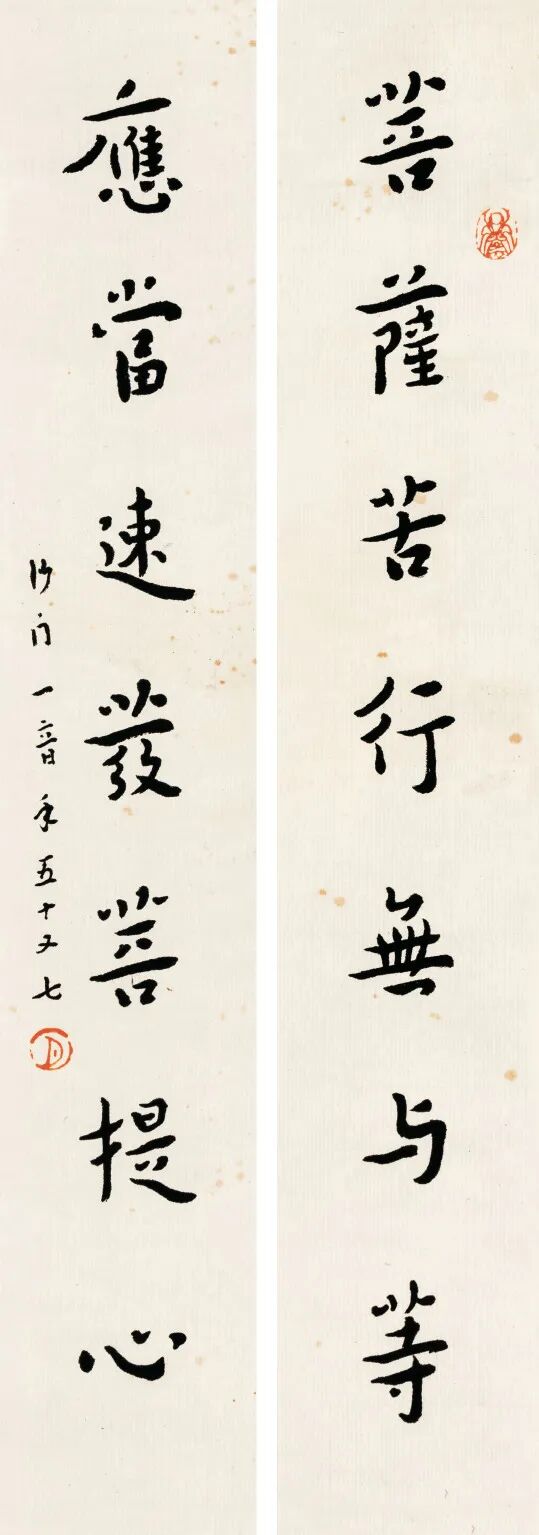 菩薩苦行無与等
應當速發菩提心
沙门一音年五十又七